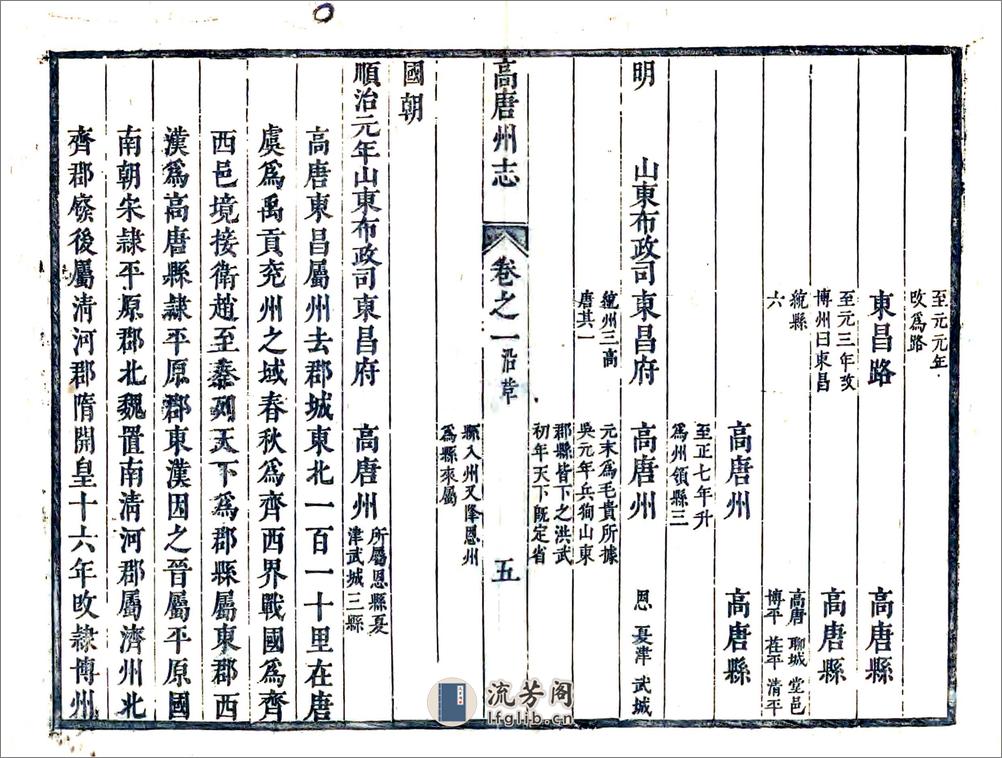 至元元年
改為路
東昌路
高唐縣
至元三年改
博州曰東昌
高唐縣
統縣
六
高唐 聊城 堂邑
博平 茌平 清平
高唐州
高唐縣
至正七年升
為州領縣三
明
山東布政司東昌府
高唐州
恩 夏津 武城
統州三高
唐其一
元末為毛貴所據
吳元年兵狥山東
郡縣皆下之洪武
初年天下既定省
高唐州志
卷之一
沿革
五
縣入州又降恩州
為縣來屬
國朝
順治元年山東布政司東昌府
高唐州
所屬恩縣夏
津武城三縣
高唐東昌屬州去郡城東北一百一十里在唐
虞為禹貢兗州之域春秋為齊西界戰國為齊
西邑境接衛趙至秦列天下為郡縣屬東郡西
漢為高唐縣隸平原郡東漢因之晉屬平原國
南朝宋隸平原郡北魏置南清河郡屬濟州北
齊郡廢後屬清河郡隋開皇十六年改隸博州
流芳阁
lfglib.cn